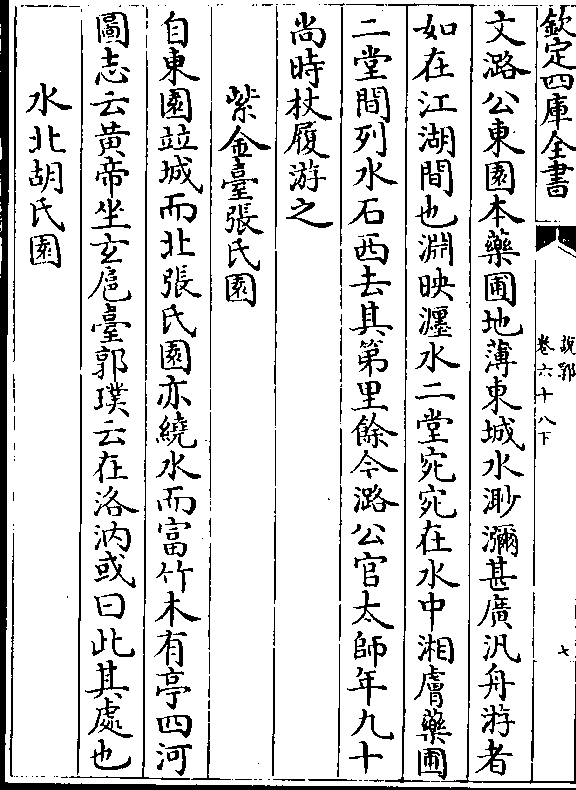 欽定四庫全書
說郛
卷六十八下
七
文潞公東園本藥圃地薄東城水渺瀰甚廣汎舟游者
如在江湖間也淵映瀍水二堂宛宛在水中湘膚藥圃
二堂間列水石西去其第里餘今潞公官太師年九十
尚時杖履游之
紫金臺張氏園
自東園竝城而北張氏園亦繞水而富竹木有亭四河
圖志云黃帝坐玄扈臺郭璞云在洛汭或曰此其處也
水北胡氏園